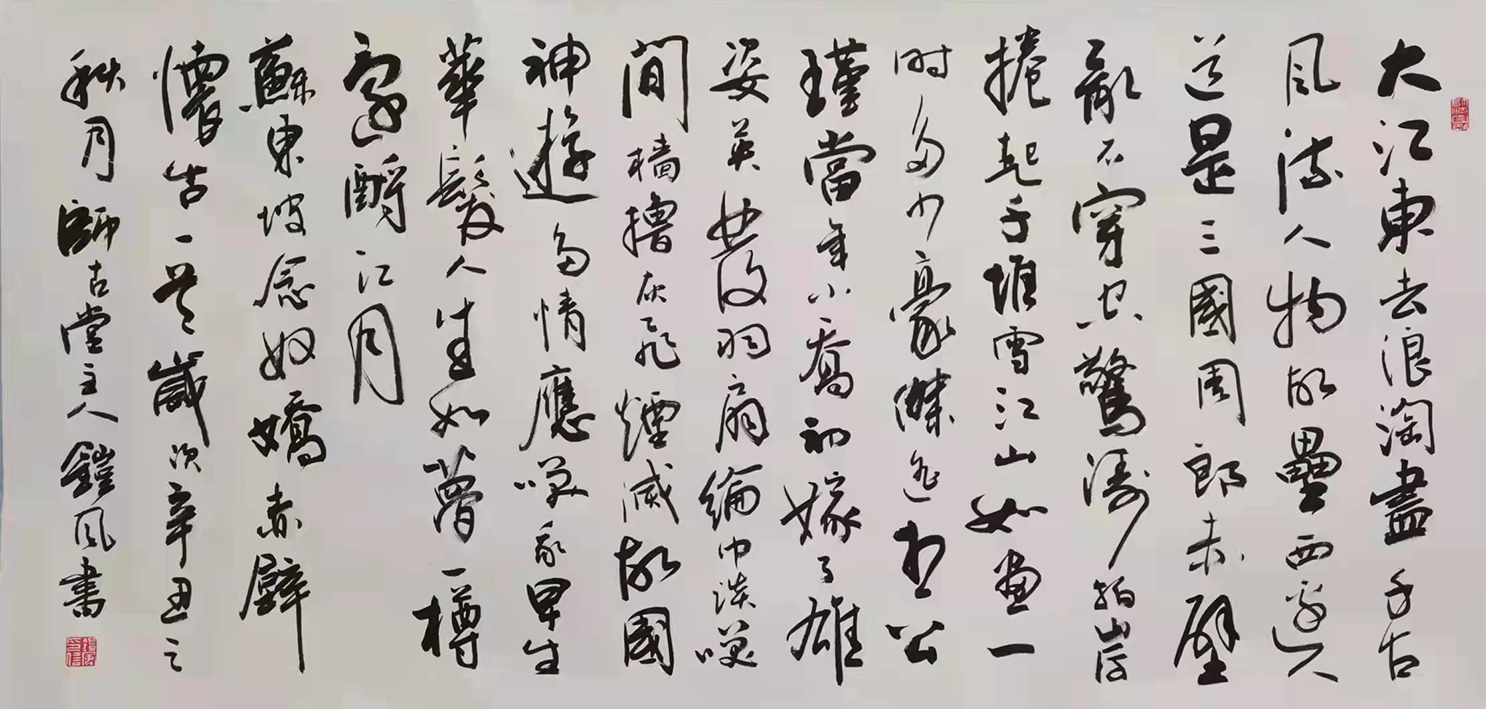 大江東去浪淘盡千古
風流人物故壘西邊人
道是三國周郎赤壁
亂石穿空驚濤拍岸
捲起千堆雪江山如畫一
时多少豪傑遥想公
瑾當年小喬初嫁了雄
姿英發羽扇綸巾談笑
間檣櫓灰飛煙滅故國
神遊多情應笑我早生
華髮人生如夢一樽
還酹江月
蘇東坡念奴嬌赤壁
懷古一首歲次辛丑之
秋月師古堂主人鎧風書